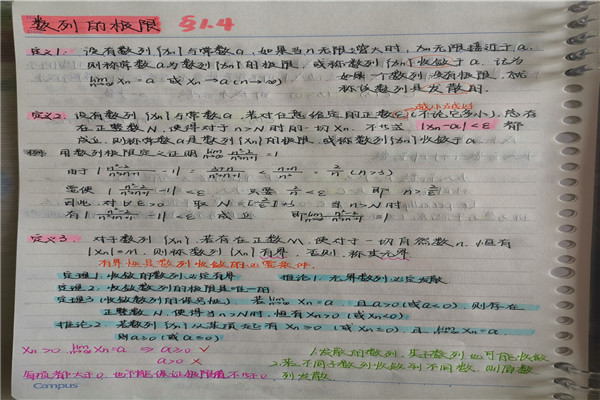 数列的极限 §1.4
定义1. 设有数列{xn}与常数a,如果当n无限增大时,xn无限接近于a.
则称常数a为数列{xn}的极限,或称数列{xn}收敛于a. 记为
lim n→∞ xn=a 或 xn→a(n→∞) 如果一个数列没有极限,就
称该数列是发散的.
定义2. 设有数列{xn}与常数a,若对任意给定的正数ε(不论它多小),总存
在正整数N,使得对于n>N时的一切xn,不等式|xn-a|<ε都
成立,则称常数a是数列{xn}的极限,或称数列{xn}收敛于a
用数列极限定义证明
由于 (n>3)
要使 <ε 只要 <ε 即 n>
因此 对∀ε>0 取 N= 当 n>N时
有 <ε 成立 即
定义3. 对于数列{xn},若存在正数M,使对于一切自然数n,恒有
|xn|≤M,则称数列{xn}有界,否则,称其无界
有界性是数列收敛的必要条件.
定理1. 收敛的数列必定有界 推论1. 无界数列必定发散
定理2. 收敛数列的极限是唯一的
定理3(收敛数列的保号性) 若 lim n→∞ xn=a,且a>0(或a<0),则存在
正整数N,使得当n>N时,恒有xn>0(或xn<0)
推论2. 若数列{xn}从某项起有xn≥0(或xn≤0)且 lim n→∞ xn=a,
则a≥0(或a≤0)
xn>0 lim n→∞ xn=a ⇒ a≥0 ✓
a>0 ×
1.发散的数列,其子数列也可能收敛
2.某 子数列收敛 不同数,则原数
列发散
Campus